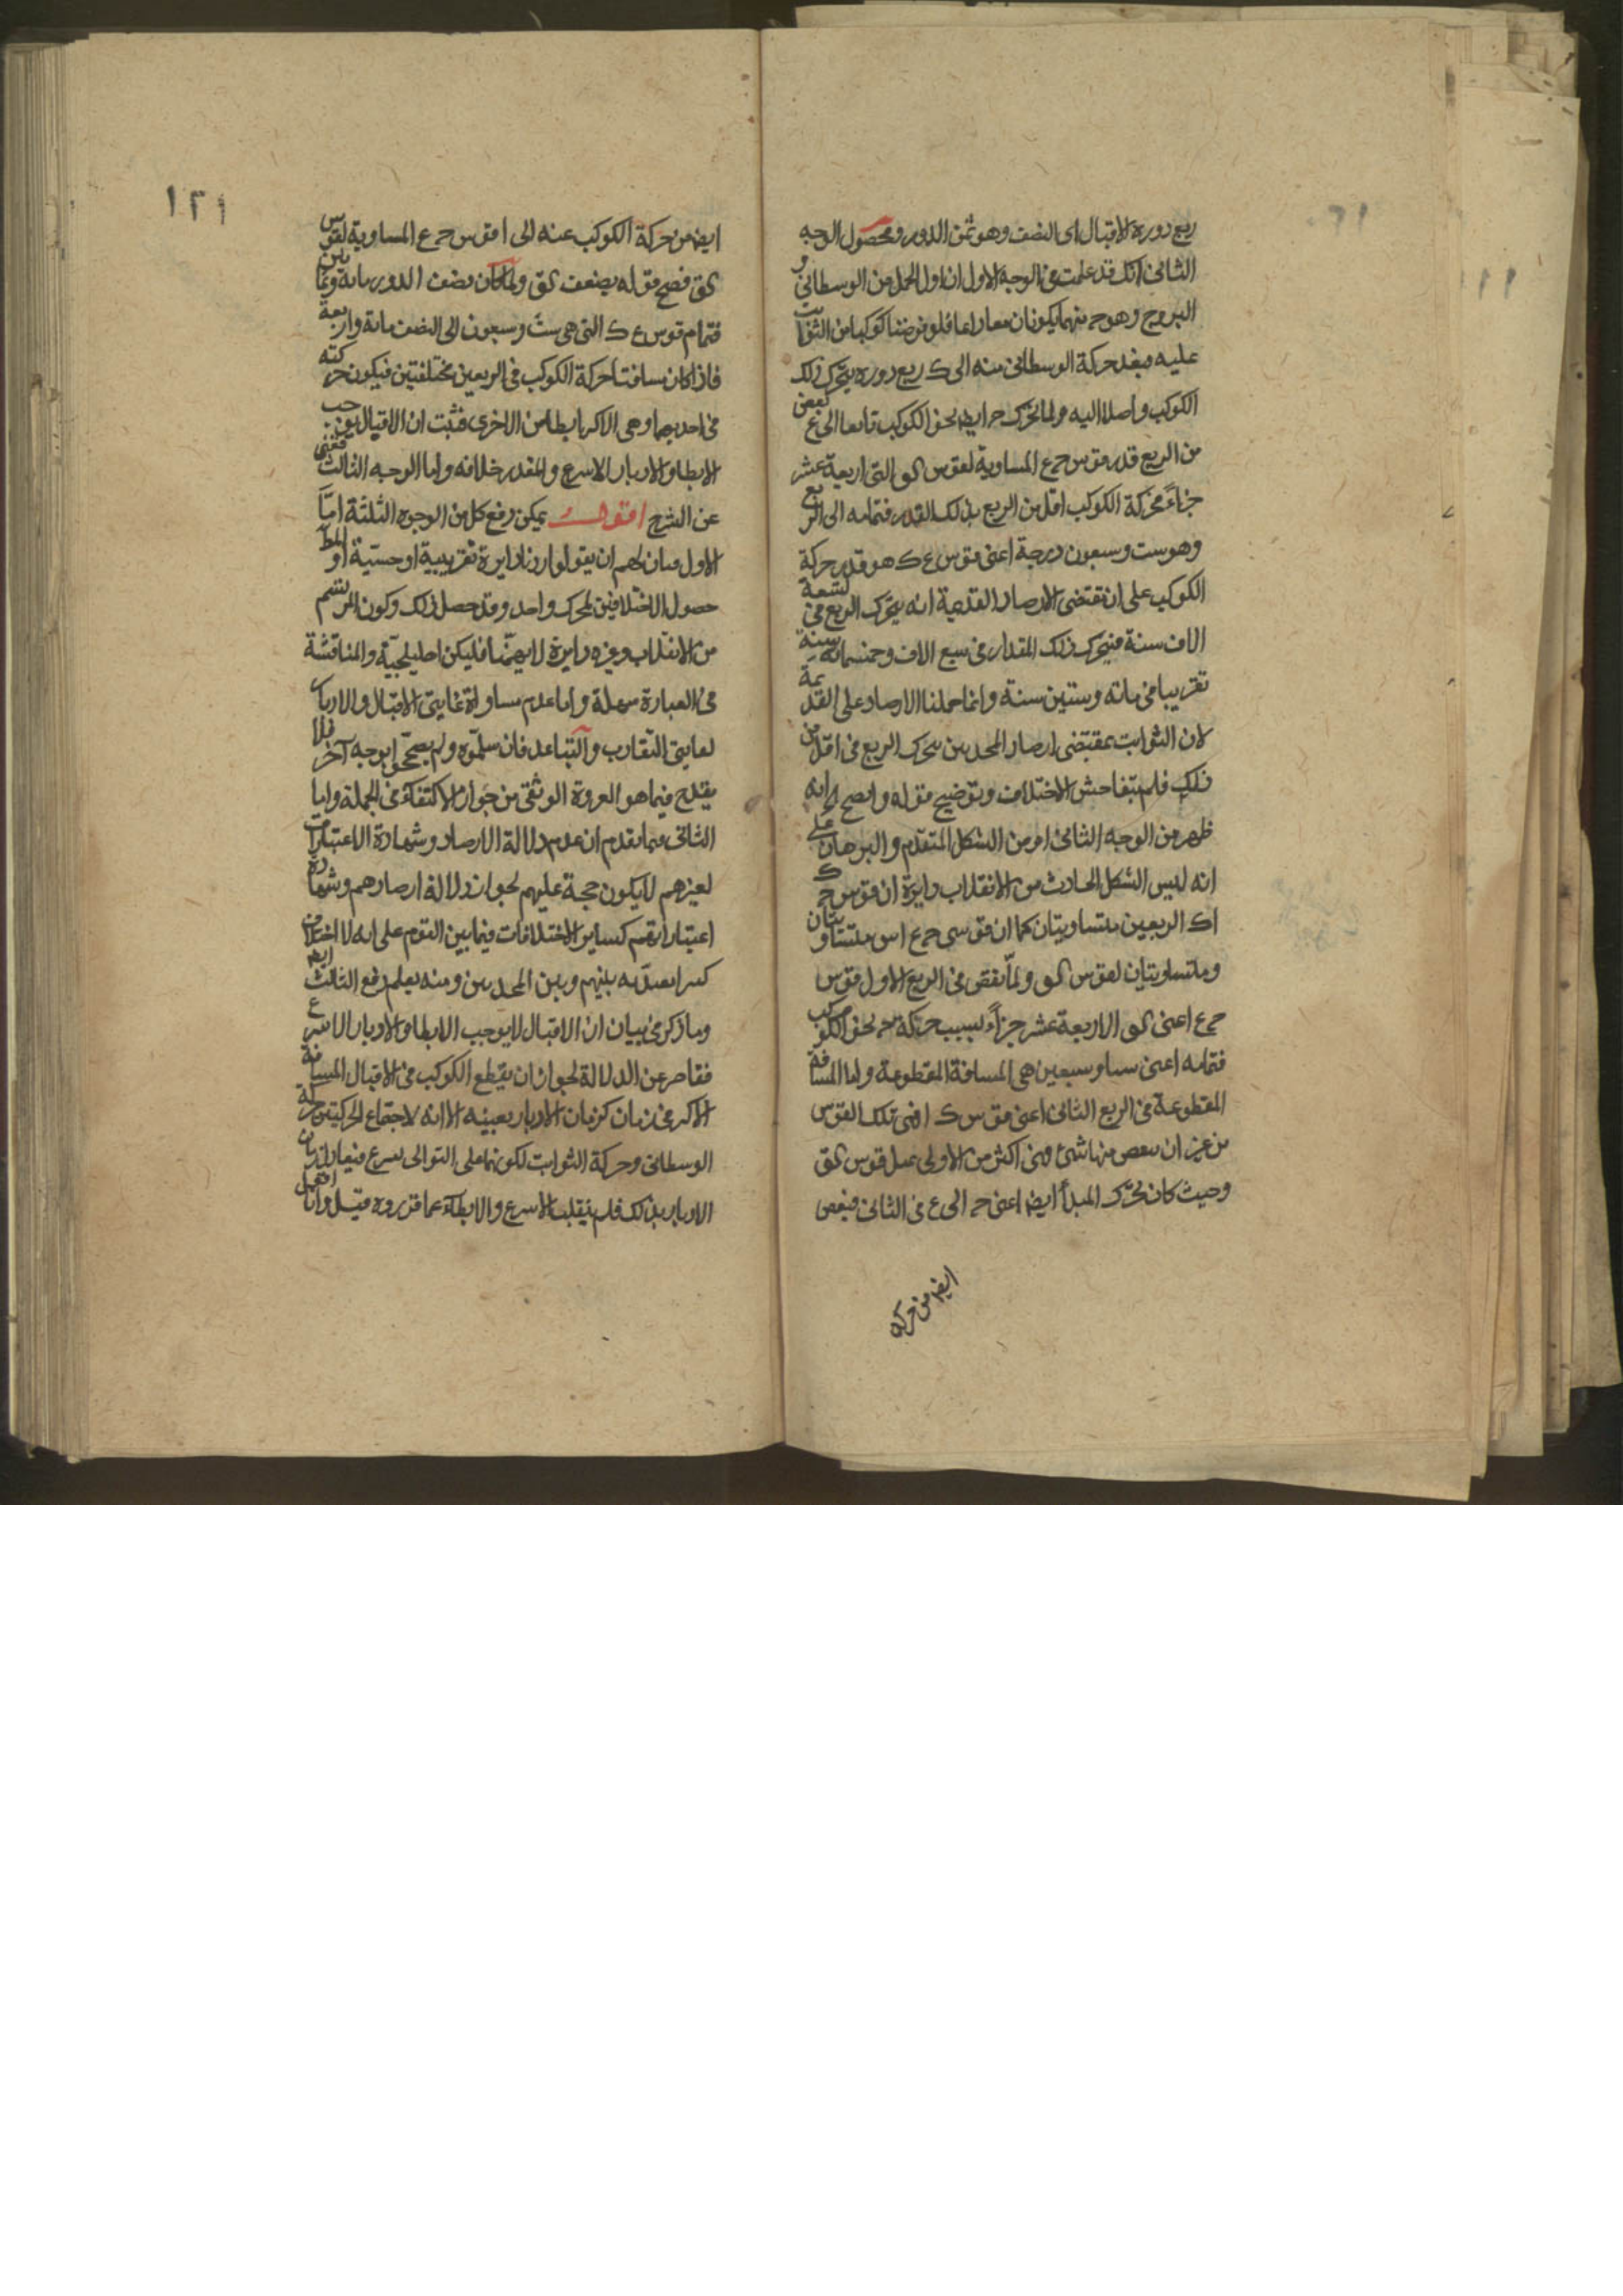 ربع دوره الاقبال اى النصف وهو ثمن الدور ومحصول الوجه
الثانى انك قد علمت فى الوجه الاول ان اول الحمل من الوسطانى و
البروج وهو ح منهما يكونان معا دايما فلو فرضنا كوكبا من الثوابت
عليه فبعد حركة الوسطانى منه الى ك ربع دوره يتحرك ذلك
الكوكب واصلا اليه ولما تحرك ح ايضا نحو الكوكب قاطعا الى ع
من الربع قدر قوس ح ع المساوية لقوس التى اربعة عشر
جزاءً فحركة الكوكب اقل من الربع بذلك القدر فتمامه الى الربع
وهو ست وسبعون درجة اعنى قوس ع ك هو قدر حركة
الكوكب على ان مقتضى الارصاد القديمة انه يتحرك الربع فى تسعة
الاف سنة فيتحرك ذلك المقدار فى سبع الاف وخمسمائة سنة
تقريبا فى مائة وستين سنة وانما حملنا الارصاد على القديمة
لان الثوابت بمقتضى ارصاد المحدثين يتحرك الربع فى اقل من
ذلك فلم يتفاحش الاختلاف وتوضيح قوله واتضح الخ انه
ظهر من الوجه الثانى او من الشكل المتقدم والبرهان على
انه ليس الشكل الحادث من الانقلاب دايرة ان قوس ح ك
اك الربعين متساويتان كما ان قوسى ح ع اس متساويتان
ومتساويتان لقوس ولما نقص فى الربع الاول قوس
ح ع اعنى الاربعة عشر جزاءً بسبب حركة ح نحو الكوكب
فتمامه اعنى ستا وسبعين هى المسافة المقطوعة واما المسافة
المقطوعة فى الربع الثانى اعنى قوس ك ا فهى تلك القوس
من غير ان ينقص منها شئ فهى اكثر من الاولى بمثل قوس
وحيث كان تحرك المبدأ ايضا اعنى ح الى ع فى الثانى فينقص
ايضا من حركة
١٢١
ايضا من حركة الكوكب عنه الى ا قوس ح ع المساوية لقوس
فصح قوله بضعف ولما كان نصف الدور مائة وثمانين
فتمام قوس ع ك التى هى ست وسبعون الى النصف مائة واربعة
فاذا كان مسافتا حركة الكوكب فى الربعين مختلفتين فيكون حركته
فى احديهما وهى الاكبر ابطا من الاخرى فثبت ان الاقبال يوجب
الابطا والادبار الاسرع والمقدر خلافه واما الوجه الثالث فغنى
عن الشرح اقول يمكن دفع كل من الوجوه الثلثة امّا
الاول فبان لهم ان يقولوا اردنا دايرة تقريبية او حسيّة او المط
حصول الاختلافين لمحرك واحد وقد حصل ذلك وكون المرتسم
من الانقلاب وغيره دايرة لا يهمّنا فليكن اهليلجية والمناقشة
فى العبارة سهلة واما عدم مساواة غايتى الاقبال والادبار
لغايتى التقارب والتباعد فان سلّموه ولم يصححوا بوجه آخر فلا
يقدح فيما هو العروة الوثقى من جواز الاكتفاء فى الجملة واما
الثانى فبما تقدم ان عدم دلالة الارصاد وشهادة الاعتبارات
لغيرهم لا يكون حجة عليهم لجواز دلالة ارصادهم وشهادة
اعتباراتهم كساير الاختلافات فيما بين القوم على انه لا اختلاف
كثيرا يعتد به بينهم وبين المحدثين ومنه يعلم دفع الثالث ايضا
وما ذكر فى بيان ان الاقبال لا يوجب الابطا والادبار الاسرع
فقاصر عن الدلالة لجواز ان يقطع الكوكب فى الاقبال المسافة
الاكبر فى زمان كزمان الادبار بعينه الا انه لاجتماع الحركتين حركة
الوسطانى وحركة الثوابت لكونهما على التوالى يسرع فيعادل زمان
الادبار بذلك فلم ينقلب الاسرع والابطاء عما قرروه قيل وانا اقول